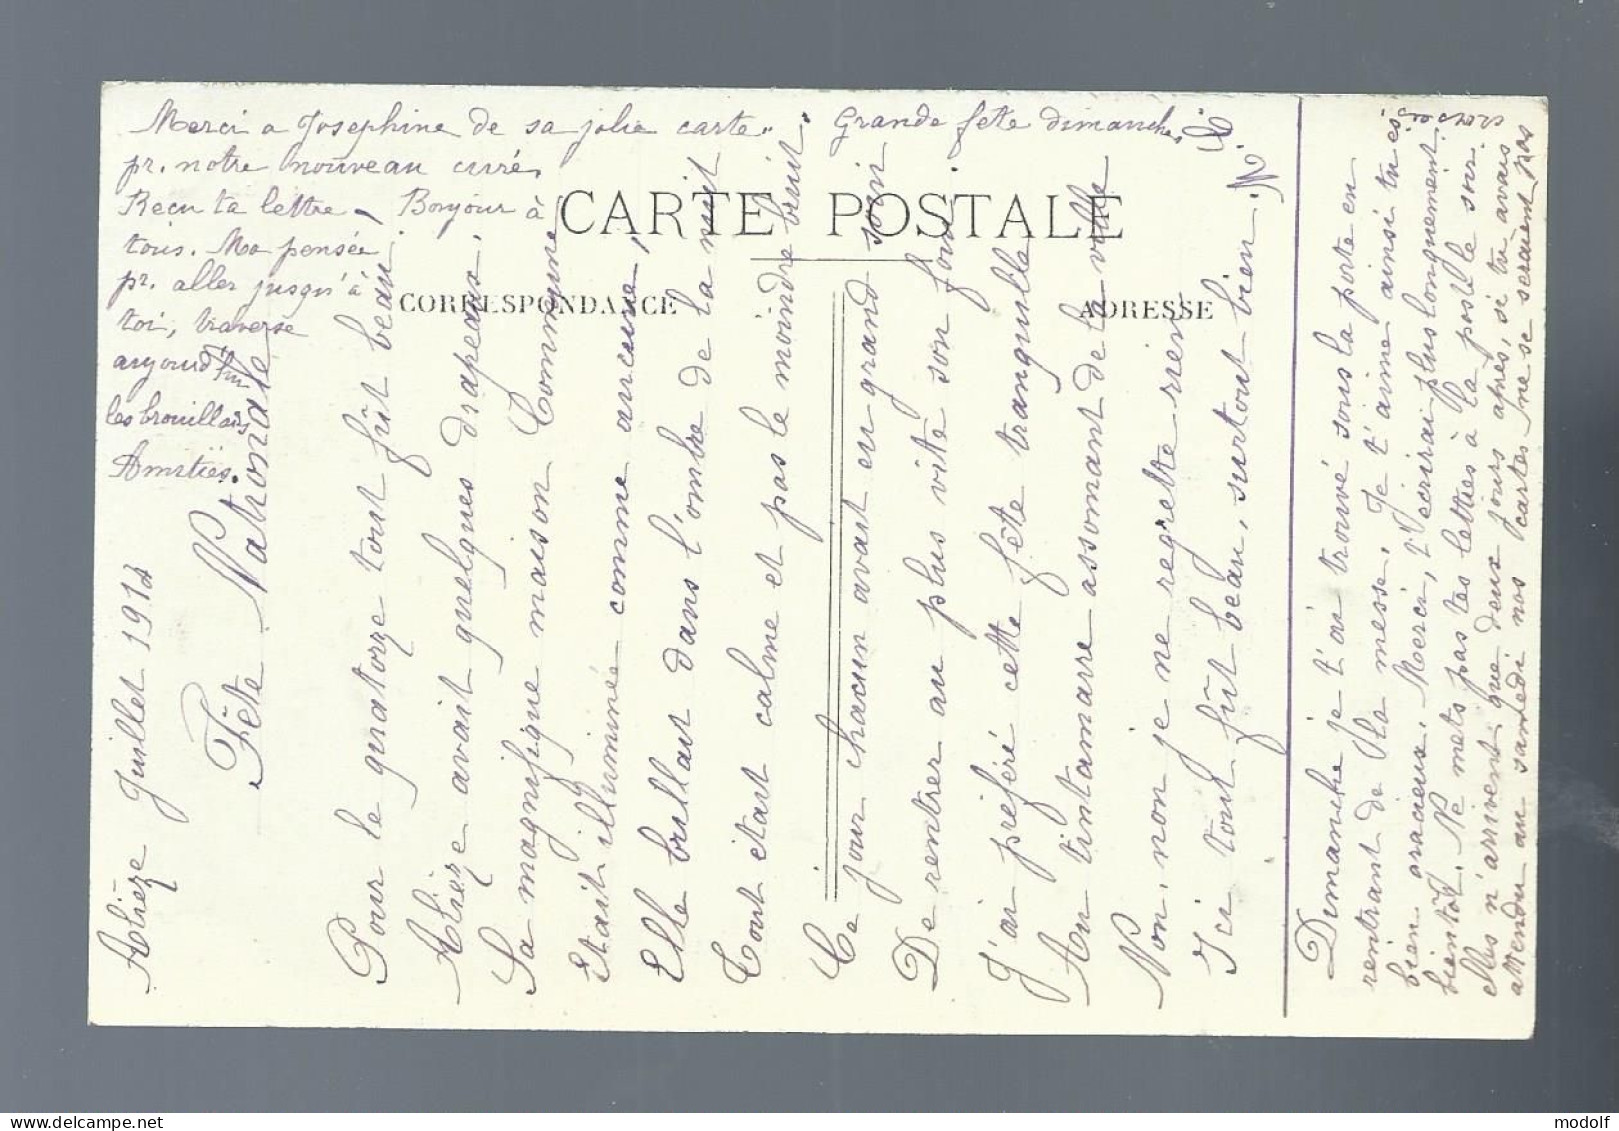 Merci a Josephine de sa jolie carte. Grande fête dimanche
pr. notre nouveau curé.
Recu ta lettre, Bonjour à
tous. Ma pensée
pr. aller jusqu'à
toi, traverse
aujourd'hui
les brouillards
Amitiés.
CARTE POSTALE
CORRESPONDANCE
ADRESSE
Ablièze Juillet 1912
Fête Nationale
Pour le quatorze tout fût beau.
Ablièze avait quelques drapeaux,
Sa magnifique maison Commune
Etait illuminée comme aucune,
Elle brillait dans l'ombre de la nuit
Tout était calme et pas le moindre bruit.
Ce jour chacun avait en grand soin
De rentrer au plus vite son foin
J'ai préféré cette fête tranquille
Au tintamare assomant de la ville
Non, non je ne regrette rien
Ici tout fût beau, surtout bien.
Dimanche je t'ai trouvé sous la porte en
rentrant de la messe. Je t'aime ainsi tu es
bien gracieux. Merci, t'écrirai plus longuement
bientôt. Ne mets pas tes lettres à la poste le soir
elles n'arrivent que deux jours après, si tu avais
attendu au samedi nos cartes ne se seraient pas
croisées.
modolf